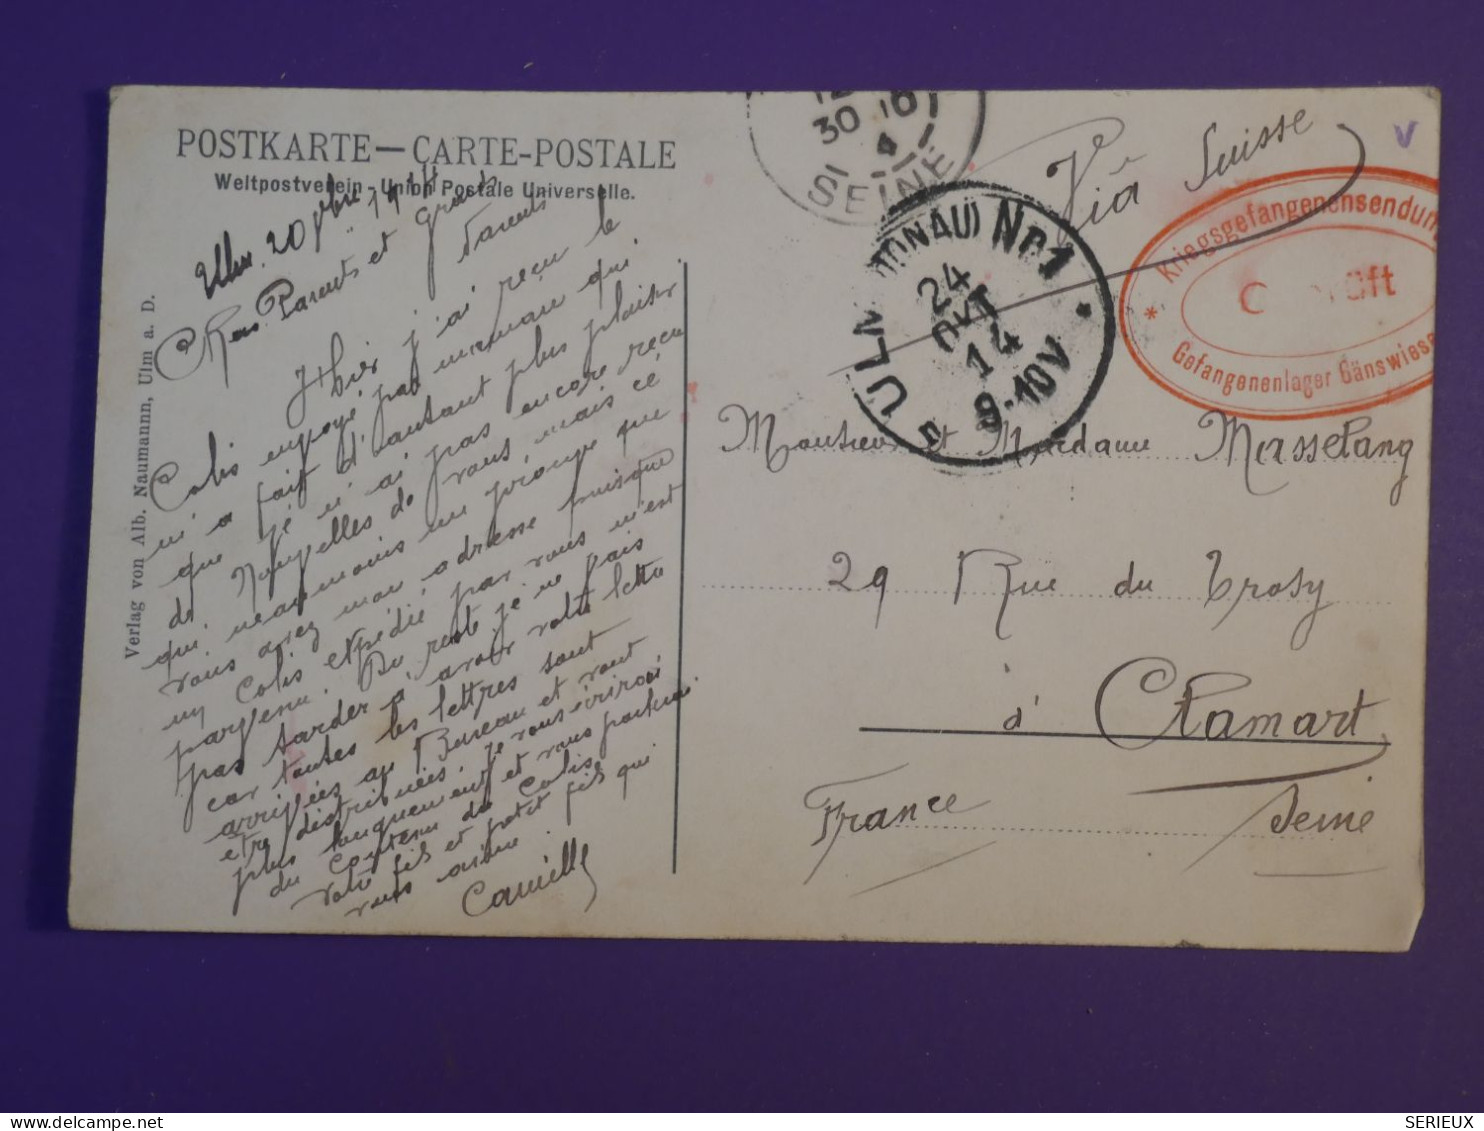 POSTKARTE — CARTE-POSTALE
Weltpostverein - Union Postale Universelle.
Verlag von Alb. Naumann, Ulm a. D.
Ulm. 20 1914
Chers Parents et Grands
Parents
Hier j'ai reçu le
Colis envoyé par maman qui
m'a fait d'autant plus plaisir
que je n'ai pas encore reçu
de Nouvelles de vous, mais ce
qui, neanmoins me prouve que
vous avez mon adresse puisque
un Colis expédié par vous m'est
parvenu. Du reste je ne pais
pas tarder à avoir votre lettre
car toutes les lettres sont
arrivées au Bureau et vont
etre distribuées. Je vous écrirai
plus longuement et vous parlerai
du Contenu du Colis.
votre fils et petit fils qui
vous aime
Camille
30 10
14
SEINE
ULM (DONAU) Nr. 1
24
OKT
14
9-10V
Via Suisse
v
Kriegsgefangenensendun
Gefangenenlager Gänswiese
Monsieur et Madame Masselang
29 Rue du Trosy
à Clamart
France Seine
SERIEUX